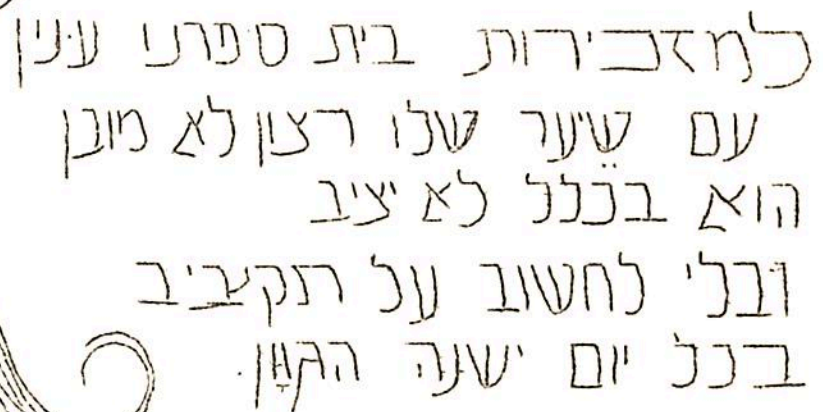 למזכירות בית ספרנו ענין
עם שיער שלו רצון לא מובן
הוא בכלל לא יציב
ובלי לחשוב על תקציב
בכל יום ישנה הגוון.